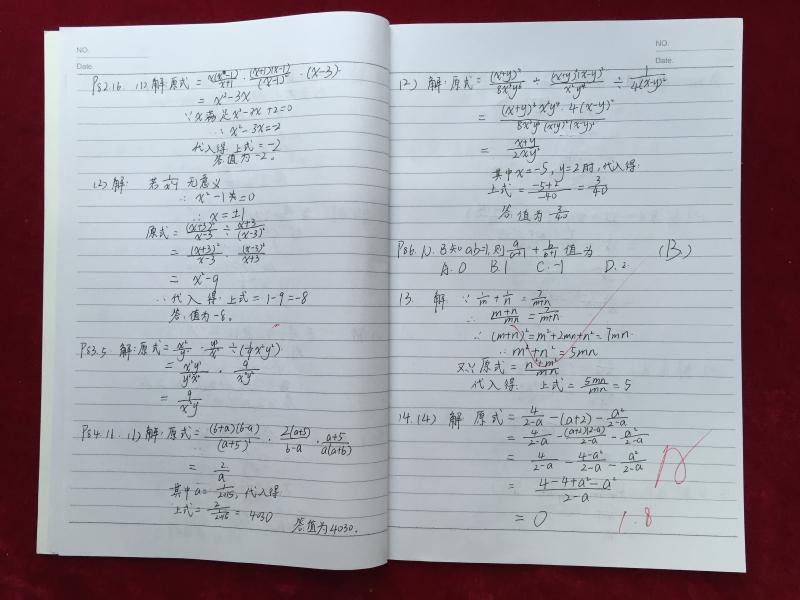 NO.
Date.
P82.16. (1)解:原式 = x(x²-1)/(x+1) · (x+1)(x-1)/(x-1)² · (x-3)
= x²-3x
∵x满足x²-3x+2=0
∴ x²-3x=-2
代入得:上式=-2
答:值为-2。
(2)解: 若 1/(x²-1) 无意义
∴ x²-1=0
∴ x=±1
原式= (x+3)²/(x-3) ÷ (x+3)/(x-3)²
= (x+3)²/(x-3) · (x-3)²/(x+3)
= x²-9
∴代入得:上式=1-9=-8
答:值为-8。
P83.5 解:原式=
= · 9/(x²y²)
= 9/(x²y)
P84.11. (1)解:原式= (6+a)(6-a)/(a+5)² · 2(a+5)/(6-a) · (a+5)/(a(a+6))
= 2/a
其中a= 1/2015, 代入得
上式= 2/(1/2015) = 4030
答:值为4030.
NO.
Date.
(2) 解:原式= (x+y)²/(8x³y⁶) ÷ (x+y)(x-y)²/(x²y⁴) ÷ 1/(4(x-y)²)
= (x+y)² x²y⁴ · 4(x-y)²/(8x³y⁶(x+y)(x-y)²)
= (x+y)/(2xy²)
其中x=-5, y=2时,代入得:
上式= (-5+2)/(-40) = 3/40
答:值为 3/40
P86.12. 已知ab=1,则 a/(a+1) + b/(b+1) 值为 (B)
A. 0 B. 1 C. -1 D. 2
13. 解: ∵ 1/m + 1/n = 7/(m+n)
∴ (m+n)/(mn) = 7/(m+n)
∴ (m+n)²=m²+2mn+n²=7mn
∴ m²+n²=5mn
又∵原式= (n²+m²)/(mn)
代入得: 上式= 5mn/mn = 5
14.(4) 解 原式= 4/(2-a) -(a+2)- a²/(2-a)
= 4/(2-a) - (a+2)(2-a)/(2-a) - a²/(2-a)
= 4/(2-a) - (4-a²)/(2-a) - a²/(2-a)
= (4-4+a²-a²)/(2-a)
= 0
1.8